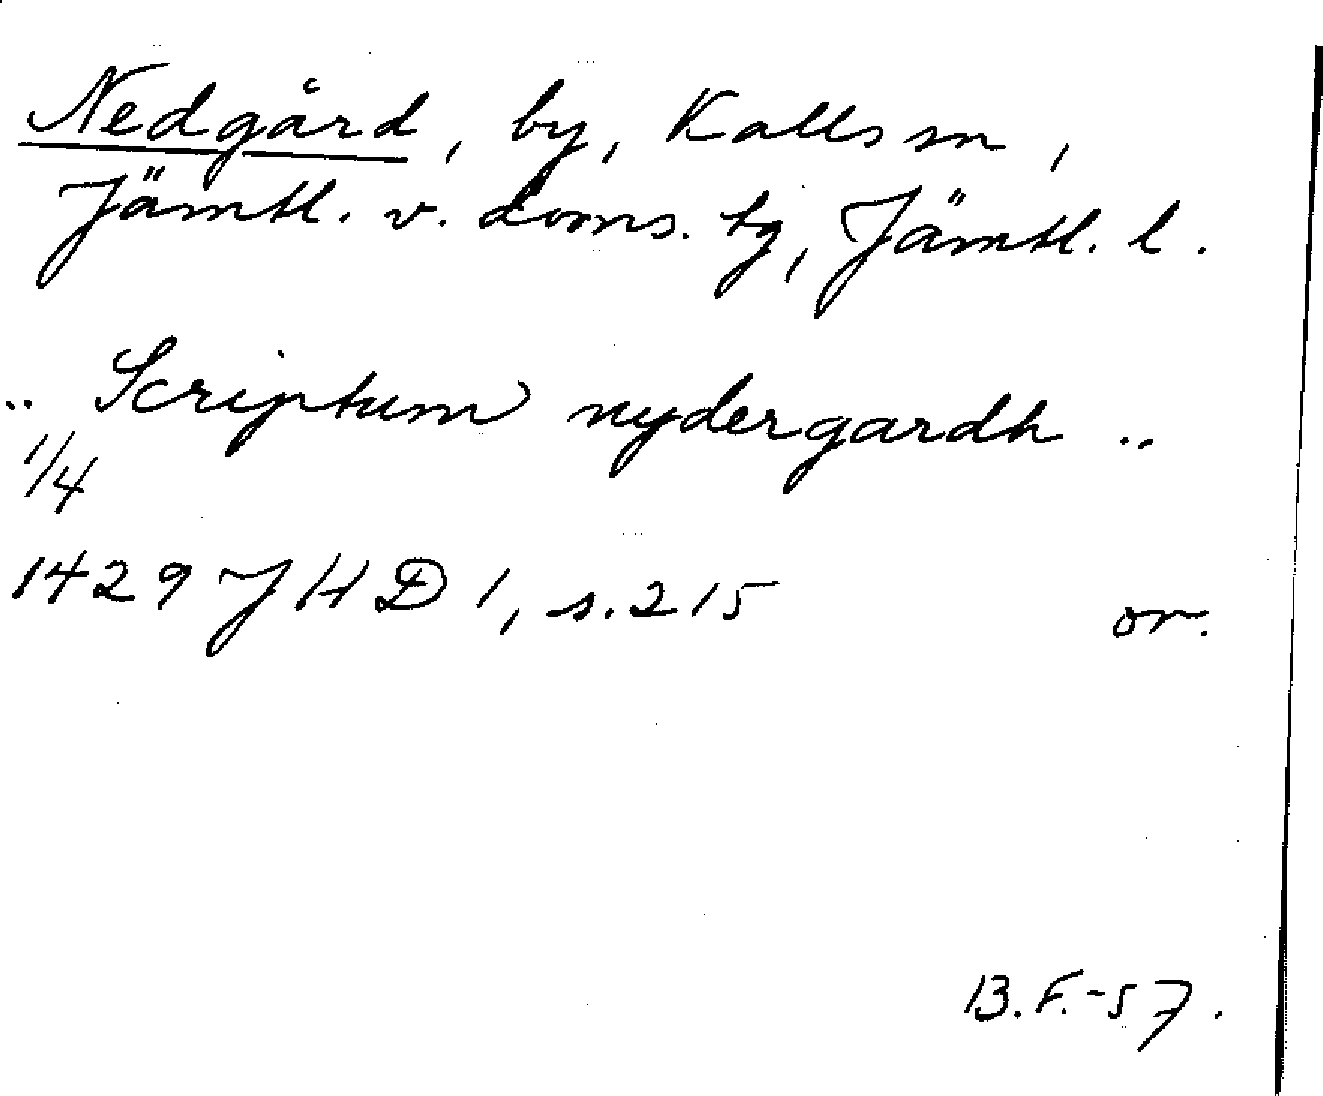 Nedgård, by, Kalls sn,
Jämtl. v. doms. tg, Jämtl. l.
.. Scriptum nydergardh ..
1/4
1429 JHD 1, s. 215 or.
B.F.-57.